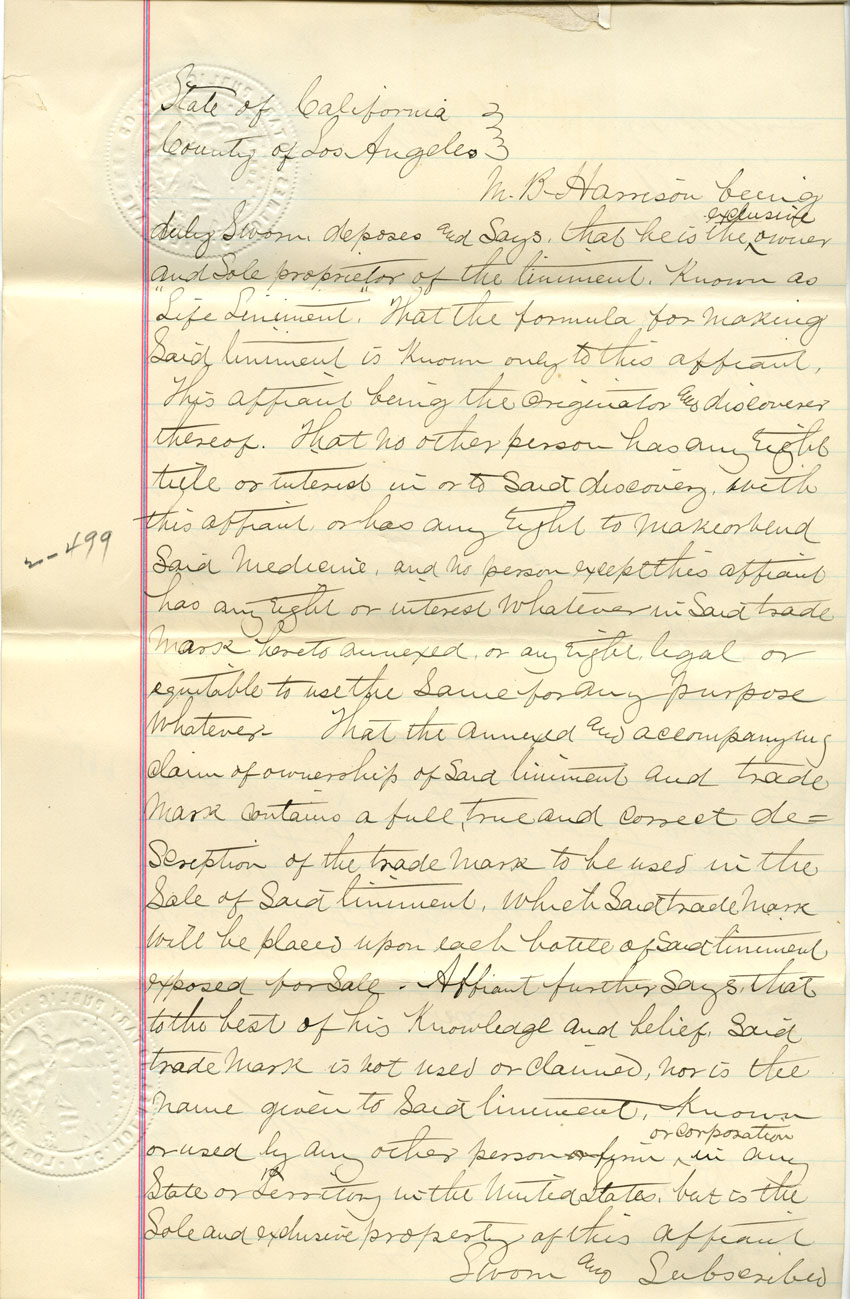 State of California }
County of Los Angeles }
M. B. Harrison being
duly Sworn, deposes and Says, that he is the exclusive owner
and Sole proprietor of the liniment, Known as
"Life Liniment." That the formula for making
Said liniment is Known only to this affiant,
This affiant being the originator and discoverer
thereof. That no other person has any right
title or interest in or to Said discovery, with
this affiant, or has any right to make or vend
Said Medicine, and no person except this affiant
has any right or interest Whatever in Said trade
Mark hereto annexed, or any right, legal or
equitable to use the Same for any purpose
Whatever- That the annexed and accompanying
claim of ownership of Said liniment and trade
Mark contains a full, true and correct de=
Scription of the trade Mark to be used in the
Sale of Said liniment, Which Said trade Mark
Will be placed upon each bottle of Said liniment
exposed for Sale - Affiant further Says, that
to the best of his Knowledge and belief, Said
trade Mark is not used or claimed, nor is the
Name given to Said liniment, Known
or used by any other person or firm or corporation, in any
State or Territory in the United States, but is the
Sole and exclusive property of this affiant
Sworn and Subscribed
2-499